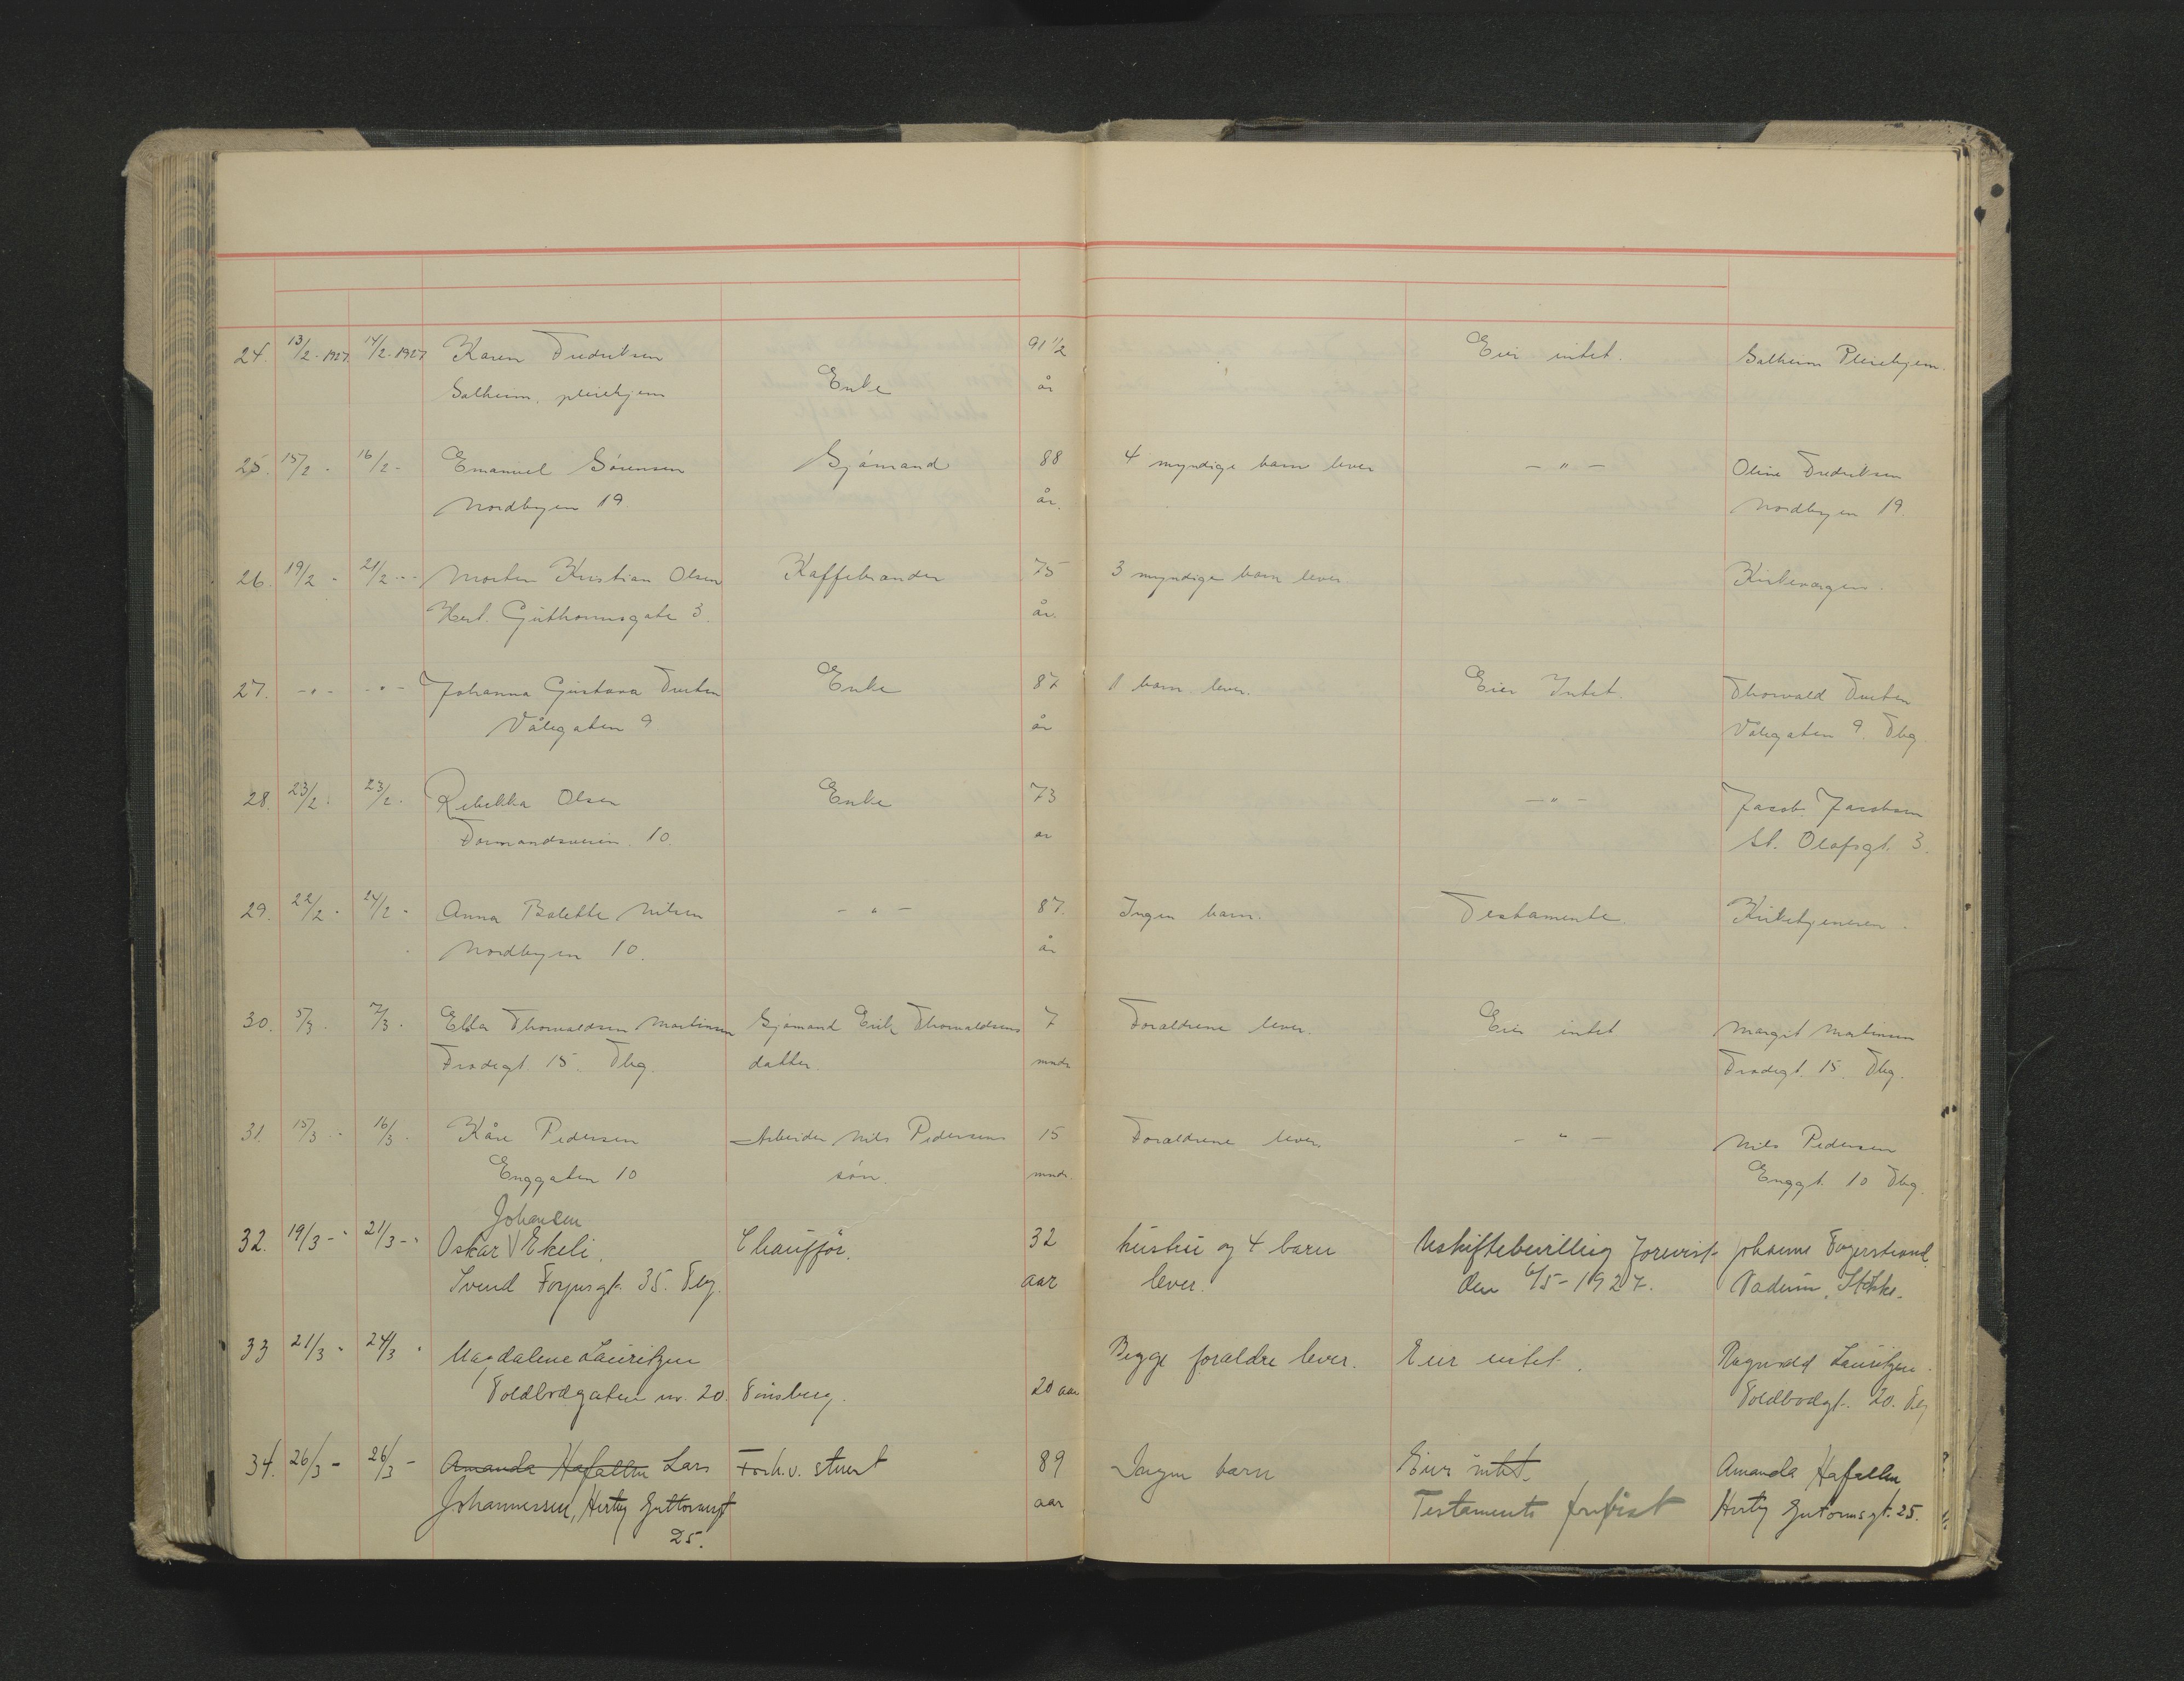 24. 13/2-1927 14/2-1927 Karen Fredriksen 91 1/2 Eier intet. Solheim Pleiehjem.
Solheim, pleiehjem Enke år
25. 15/2 - 16/2 - Emanuel Sørensen Sjømand 88 4 myndige barn lever - " - Oline Fredriksen
Nordbyen 19 år. Nordbyen 19.
26. 19/2 - 21/2 - - Morten Kristian Olsen Kaffebrander 75 3 myndige barn lever Kirkevergen.
Hert. Guthormsgate 3. år.
27. - " - - " - Johanna Gustava 87 1 barn lever. Eier Intet. Thorvald
Enke
Vålegaten 9 år Vålegaten 9. Tbg.
28. 23/2 - 23/2 - Rebekka Olsen Enke 73 - " - Jacob Jacobsen
Formandsveien 10. år St. Olafsgt. 3.
29. 22/2 - 24/2 - Anna Bolette Nilsen - " - 87. Ingen barn. Testamente. Kirketjeneren.
Nordbyen 10. år
30. 5/3 - 7/3 - Ebba Thorvaldsen Martinsen Sjømand Erik Thorvaldsens 7 Forældrene lever. Eier intet Margit Martinsen
15. Tbg. datter. mndr. 15. Tbg.
31. 15/3 - 16/3 - Kåre Pedersen Arbeider Nils Pedersens 15 Forældrene lever. - " - Nils Pedersen
Enggaten 10 søn. mndr. Enggt. 10 Tbg.
Johansen
32. 19/3 - " 21/3 - " Oskar \/ Ekeli. Chauffør. 32 hustru og 4 barn Uskiftebevilling forevist Johanne Fagerstrand
Svend Foynsgt. 35. Tbg. aar lever. den 6/5-1927. Vadum, Stokke.
33 21/3 - 24/3 - Magdalene Lauritzen Begge forældre lever. Eier intet. Ragnvald Lauritzen
Toldbodgaten nr. 20. Tønsberg. 20 aar Toldbodgt. 20. Tbg
34. 26/3 - 26/3 - Amanda Hafallen Lars Forh.v. stuert 89 Ingen barn Eier intet. Amanda Hafallen
Johannessen, Hertg Guttormsgt aar Testamente forevist Hertg Gutormsgt. 25.
25.